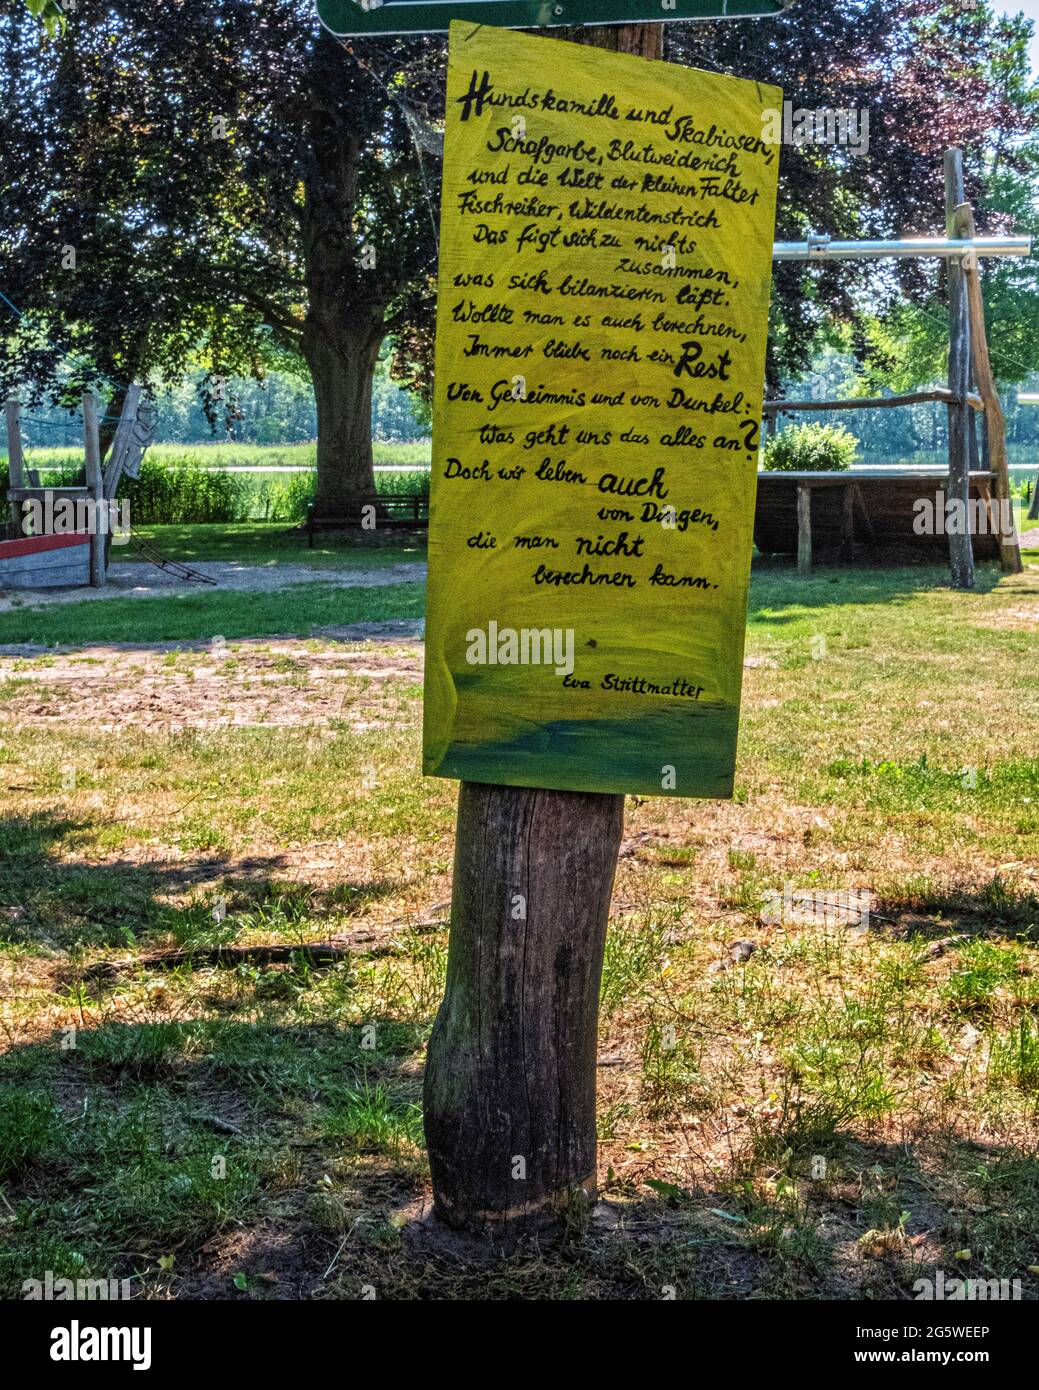 Hundskamille und Skabiosen,
Schafgarbe, Blutweiderich
und die Welt der kleinen Falter
Fischreiher, Wildentenstrich
Das fügt sich zu nichts
zusammen,
was sich bilanzieren läßt.
Wollte man es auch berechnen,
Immer bliebe noch ein Rest
Von Geheimnis und von Dunkel:
Was geht uns das alles an?
Doch wir leben auch
von Dingen,
die man nicht
berechnen kann.
Eva Strittmatter
alamy
alamy
alamy
alamy
Image ID: 2G5WEEP
www.alamy.com